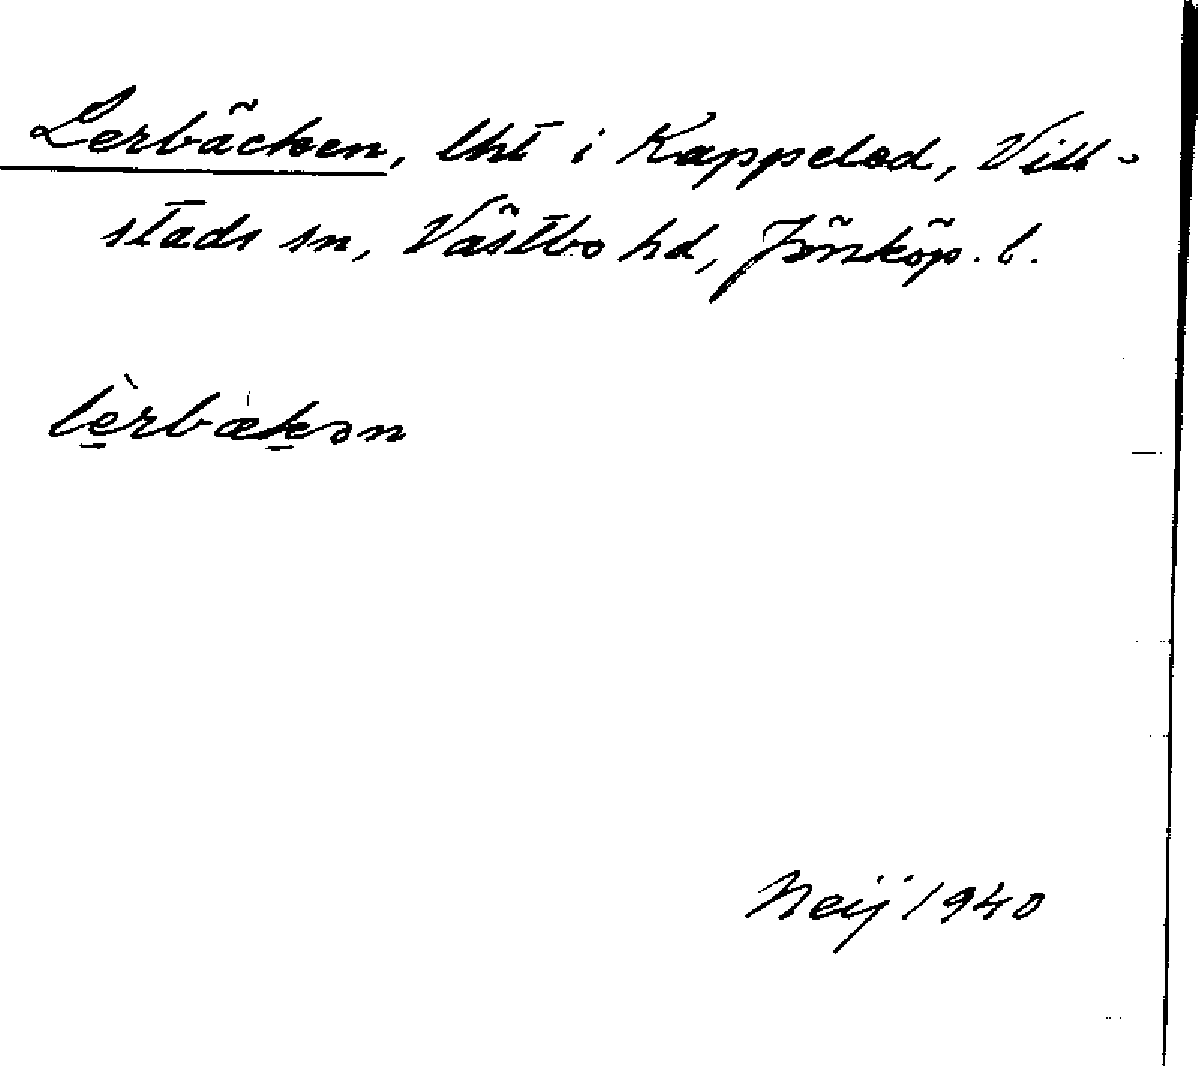 Lerbäcken, lht i Kappeled, Vill-
stads sn, Västbo hd, Jönköp. l.
lèrbækən
Neij 1940